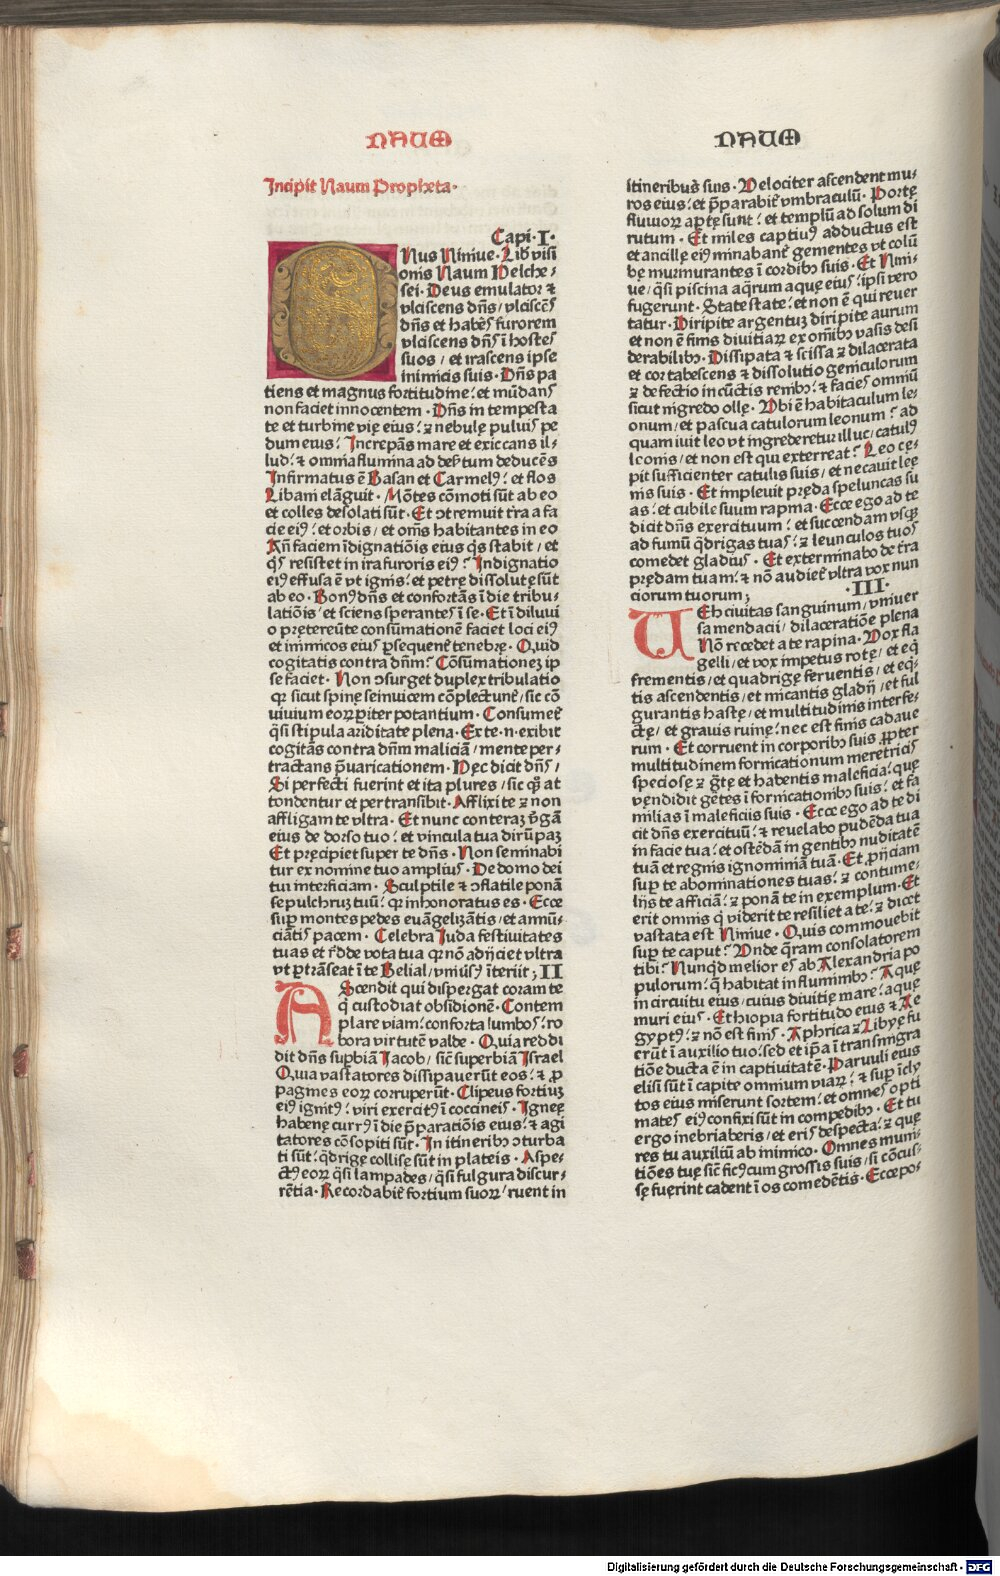 NAUM
Incipit Naum Propheta·
Capi·I·
Nus Niniue·Lib̄ visi
onis Naum Helche⸗
sei·Deus emulator ⁊
vlciscens dn̄s/vlciscēs
dn̄s et habēs furorem
vlciscens dn̄s ī hostes
suos/et irascens ipse
inimicis suis·Dn̄s pa
tiens et magnus fortitudine:et mūdans
non faciet innocentem·Dn̄s in tempesta
te et turbine vię eius:⁊ nebulę puluis pe
dum eius:Increpās mare et exiccans il⸗
lud:⁊ omnia flumina ad desertum deducēs
Infirmatus ē Basan et Carmelꝰ:et flos
Libani elāguit·Mōtes cōmoti sūt ab eo
et colles desolati sūt·Et ↄtremuit tr̄ra a fa
cie eiꝰ:et orbis/et om̄s habitantes in eo
An̄ faciem īdignatiōis eius q̄s stabit/et
q̄s resistet in ira furoris eiꝰ:Indignatio
eiꝰ effusa ē vt ignis:et petrę dissolutę sūt
ab eo·Bonꝰ dn̄s et confortās ī die tribu⸗
latiōis:et sciens sperantes ī se·Et ī diluui
o pretereūte consūmationē faciet loci eiꝰ
et inimicos eius ꝑsequent̄ tenebrę·Quid
cogitatis contra dn̄m:Cōsūmationeꝫ ip
se faciet·Non ↄsurget duplex tribulatio
qꝛ sicut spinę seinuicem cōplectunt̄/sic cō
uiuium eoꝝ ꝑiter potantium·Consument̄
q̄si stipula ariditate plena·Ex te·n·exibit
cogitās contra dn̄m maliciā/mente per⸗
tractans p̄uaricationem·Hęc dicit dn̄s/
Si perfecti fuerint et ita plures/sic qꝫ at
tondentur et pertransibit·Afflixi te ⁊ non
affligam te vltra·Et nunc conteraꝫ v̄gā
eius de dorso tuo:et vincula tua dirūpaꝫ
Et pręcipiet super te dn̄s·Non seminabi
tur ex nomine tuo amplius·De domo dei
tui interficiam·Sculptile ⁊ ↄflatile ponā
sepulchruꝫ tuū:qꝛ inhonoratus es·Ecce
suꝑ montes pedes euāgelizātis/et annū⸗
ciātis pacem·Celebra Iuda festiuitates
tuas et redde vota tua qꝛ nō adijciet vltra
vt ꝑtrāseat ī te Belial/vniuersꝰ īteriit;II
AScendit qui dispergat coram te
q̄ custodiat obsidionē·Contem
plare viam:conforta lumbos:ro
bora virtutē valde·Quia reddi
dit dn̄s suꝑbiā Iacob/sic̄ superbiā Israel
Quia vastatores dissipauerūt eos:⁊ ꝓ
pagines eoꝝ corruperūt·Clipeus fortiuꝫ
eiꝰ ignitꝰ:viri exercitꝰ ī coccineis·Igneę
habenę currꝰ ī die p̄paratiōis eius:⁊ agi
tatores cōsopiti sūt·In itineribꝫ ↄturba
ti sūt:q̄drigę collisę sūt in plateis·Aspe⸗
ctꝰ eoꝝ q̄si lampades/q̄si fulgura discur⸗
rētia·Recordabit̄ fortium suoꝝ:ruent in
NAUM
itineribus suis·Velociter ascendent mu⸗
ros eius:et p̄parabit̄ vmbraculū·Portę
fluuioꝝ aꝑtę sunt:et templū ad solum di
rutum·Et miles captiuꝰ adductus est
et ancillę eiꝰ minabant̄ gementes vt colū
bę murmurantes ī cordibꝫ suis·Et Nini⸗
ue/q̄si piscina aq̄rum aquę eius:ipsi vero
fugerunt·State state:et non ē qui reuer
tatur·Diripite argentuꝫ diripite aurum
et non ē finis diuitiaꝝ ex om̄ibꝫ vasis desi
derabilibꝫ·Dissipata ⁊ scissa ⁊ dilacerata
et cor tabescens ⁊ dissolutio geniculorum
⁊ defectio in cūctis renibꝫ:⁊ facies omniū
sicut nigredo ollę·Vbi ē habitaculum le⸗
onum/et pascua catulorum leonum:ad
quam iuit leo vt ingrederetur illuc/catulꝰ
leonis/et non est qui exterreat:Leo cę⸗
pit sufficienter catulis suis/et necauit leę
nis suis·Et impleuit pręda speluncas su
as:et cubile suum rapina·Ecce ego ad te
dicit dn̄s exercituum:et succendam vsqꝫ
ad fumū q̄drigas tuas:⁊ leunculos tuos
comedet gladius·Et exterminabo de tr̄ra
prędam tuam:⁊ nō audiet̄ vltra vox nun
ciorum tuorum;
·III·
UEh ciuitas sanguinum/vniuer
sa mendacii/dilaceratiōe plena
Nō recedet a te rapina·Vox fla
gelli/et vox impetus rotę/et eq̄
frementis/et quadrigę feruentis/et eq̄⸗
tis ascendentis/et micantis gladij/et ful
gurantis hastę/et multitudinis interfe⸗
ctę/et grauis ruinę:nec est finis cadaue
rum·Et corruent in corporibꝫ suis ꝓpter
multitudinem fornicationum meretricis
speciosę ⁊ gr̄tę et habentis maleficia:quę
vendidit gētes ī fornicationibꝫ suis:et fa
milias ī maleficiis suis·Ecce ego ad te di
cit dn̄s exercituū:⁊ reuelabo pudēda tua
in facie tua:et ostēdā in gentibꝫ nuditatē
tuā et regnis ignominiā tuā·Et ꝓijciam
suꝑ te abominationes tuas:⁊ contume⸗
lijs te afficiā:⁊ ponā te in exemplum·Et
erit omnis q̄ viderit te resiliet a te:⁊ dicet
vastata est Niniue·Quis commouebit
suꝑ te caput:Vnde q̄ram consolatorem
tibi:Nunqd̄ melior es ab Alexandria po
pulorum:q̄ habitat in fluminibꝫ:Aquę
in circuitu eius/cuius diuitię mare:aquę
muri eius·Ethiopia fortitudo eius ⁊ Ae
gyptꝰ:⁊ nō est finis·Aphrica ⁊ Libyę fu
erūt ī auxilio tuo:sed et ip̄a ī transmigra
tiōe ducta ē in captiuitatē·Paruuli eius
elisi sūt ī capite omnium viaꝝ:⁊ suꝑ īcly
tos eius miserunt sortem:et omnes opti
mates eiꝰ confixi sūt in compedibꝫ·Et tu
ergo inebriaberis/et eris despecta:⁊ quę
res tu auxiliū ab inimico·Omnes muni⸗
tiōes tuę sic̄ ficꝰ cum grossis suis/si cōcus⸗
sę fuerint cadent ī os comedētis·Ecce po⸗
Digitalisierung gefördert durch die Deutsche Forschungsgemeinschaft - DFG